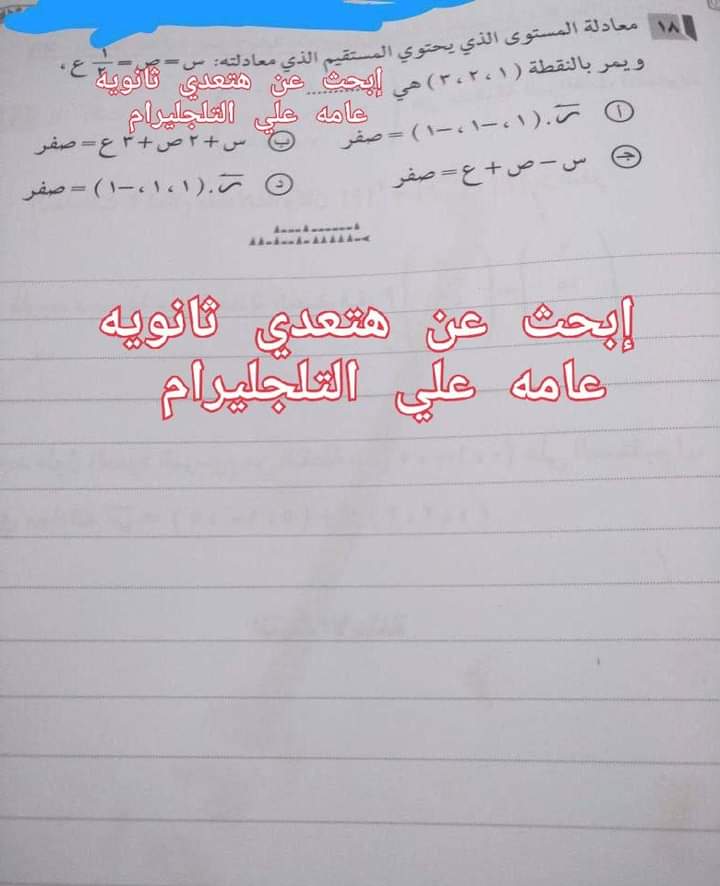 ١٨ معادلة المستوى الذي يحتوي المستقيم الذي معادلته: س = ص = ١/٢ ع ،
و يمر بالنقطة (١ ، ٢ ، ٣) هي ..........
إبحث عن هتعدي ثانويه
عامه علي التلجليرام
أ ر . (١ ، -١ ، -١) = صفر
ب س + ٢ ص + ٣ ع = صفر
جـ س - ص + ع = صفر
د ر . (١ ، ١ ، -١) = صفر
إبحث عن هتعدي ثانويه
عامه علي التلجليرام